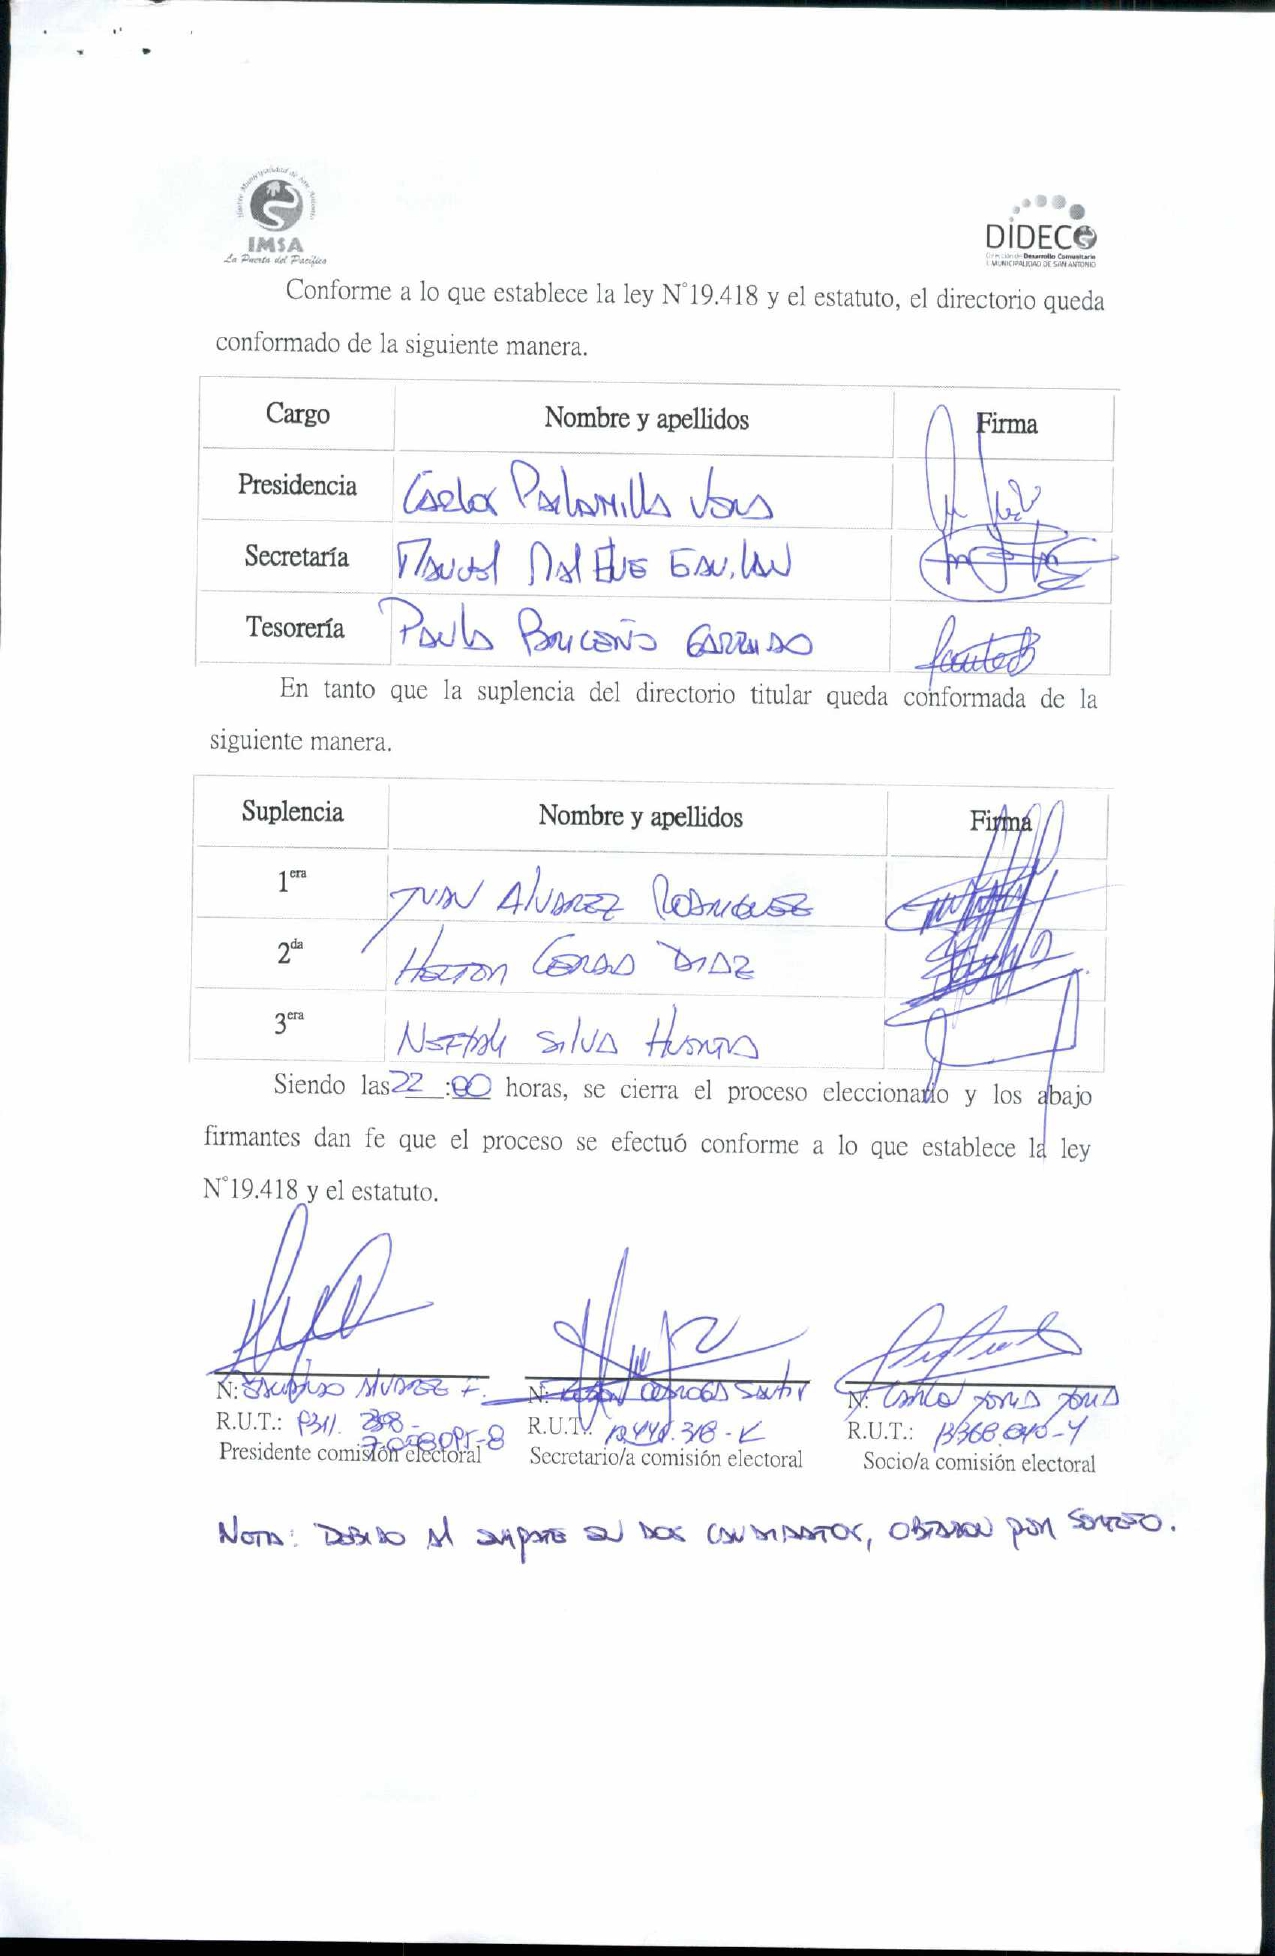 Ilustre Municipalidad de San Antonio
IMSA
La Puerta del Pacífico
DIDECO
Dirección de Desarrollo Comunitario
I. MUNICIPALIDAD DE SAN ANTONIO
Conforme a lo que establece la ley N°19.418 y el estatuto, el directorio queda
conformado de la siguiente manera.
Cargo Nombre y apellidos Firma
Presidencia Carlos
Secretaría Manuel
Tesorería Paula Briceño Garrido
En tanto que la suplencia del directorio titular queda conformada de la
siguiente manera.
Suplencia Nombre y apellidos Firma
1era Juan Alvarez Rodriguez
2da Hector Cerda Diaz
3era Neftaly Silva Huerta
Siendo las 22:00 horas, se cierra el proceso eleccionario y los abajo
firmantes dan fe que el proceso se efectuó conforme a lo que establece la ley
N°19.418 y el estatuto.
N: Alvarez F. N: N:
R.U.T.: R.U.T. R.U.T.:
Presidente comisión electoral Secretario/a comisión electoral Socio/a comisión electoral
Nota: Debido al empate en dos candidatos, por sorteo.